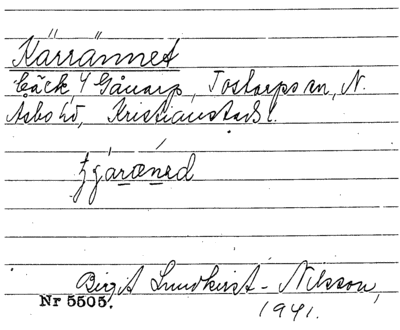 Kärrännet
bäck, 4 Gånarp, Tostarps sn, N.
Åsbo hd, Kristianstads l.
Birgit Lundkvist-Nilsson,
Nr 5505.
1941.